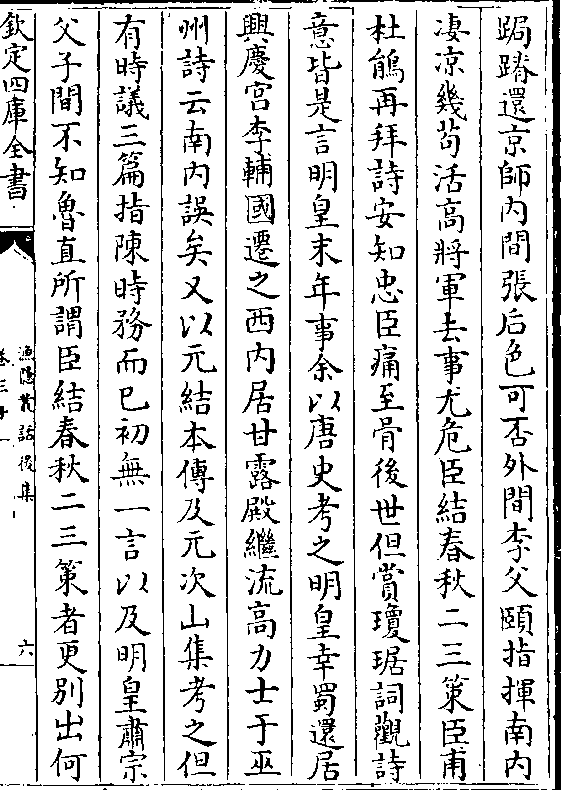 跼蹐還京師内間張后色可否外間李父頤指揮南内
凄凉幾茍活高將軍去事尤危臣結春秋二三策臣甫
杜鵑再拜詩安知忠臣痛至骨後世但賞瓊琚詞觀詩
意皆是言明皇末年事余以唐史考之明皇幸蜀還居
興慶宫李輔國遷之西内居甘露殿繼流高力士于巫
州詩云南内誤矣又以元結本傳及元次山集考之但
有時議三篇指陳時務而已初無一言以及明皇肅宗
父子間不知魯直所謂臣結春秋二三策者更别出何
欽定四庫全書
漁隱叢話後集
卷三十一
六